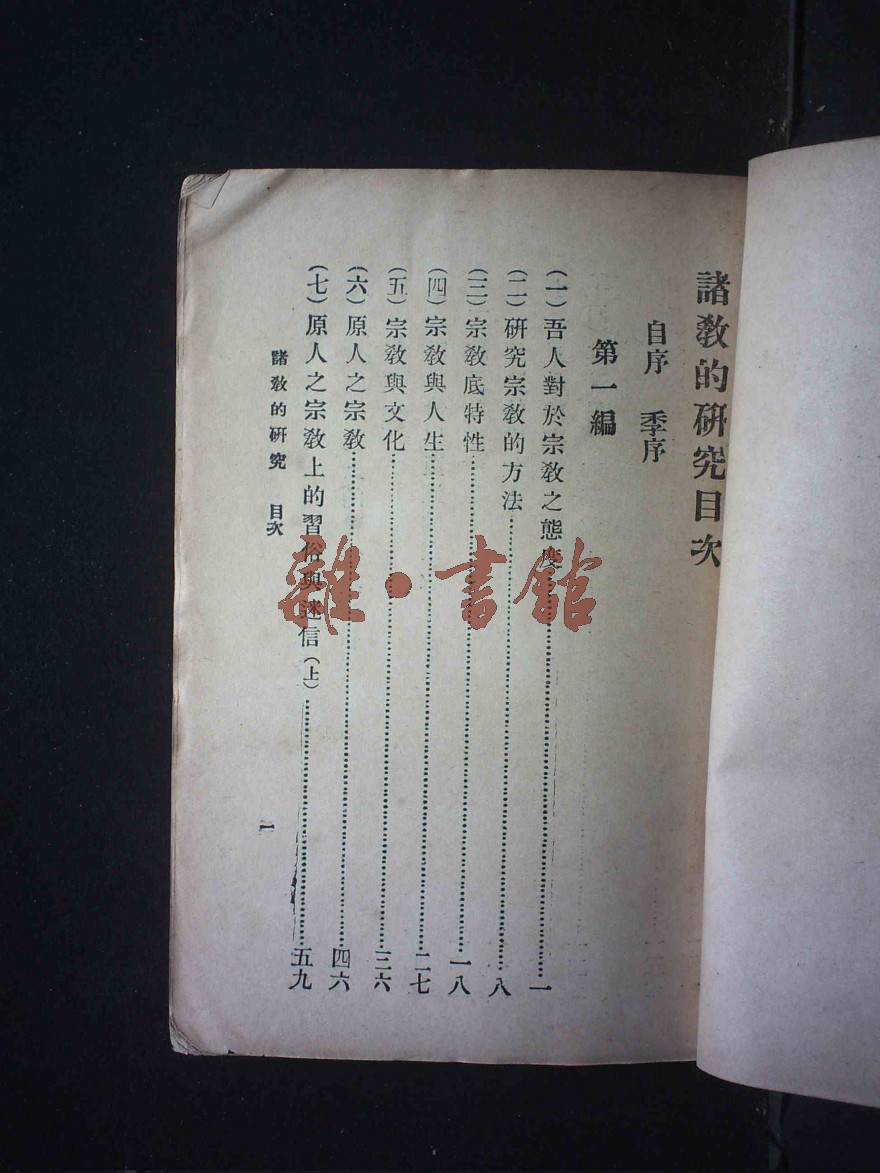 諸教的研究目次
自序 季序
第一編
(一)吾人對於宗教之態度……一
(二)研究宗教的方法……八
(三)宗教底特性……一八
(四)宗教與人生……二七
(五)宗教與文化……三六
(六)原人之宗教……四六
(七)原人之宗教上的習俗與迷信(上)……五九
諸教的研究 目次
一
雜·書館